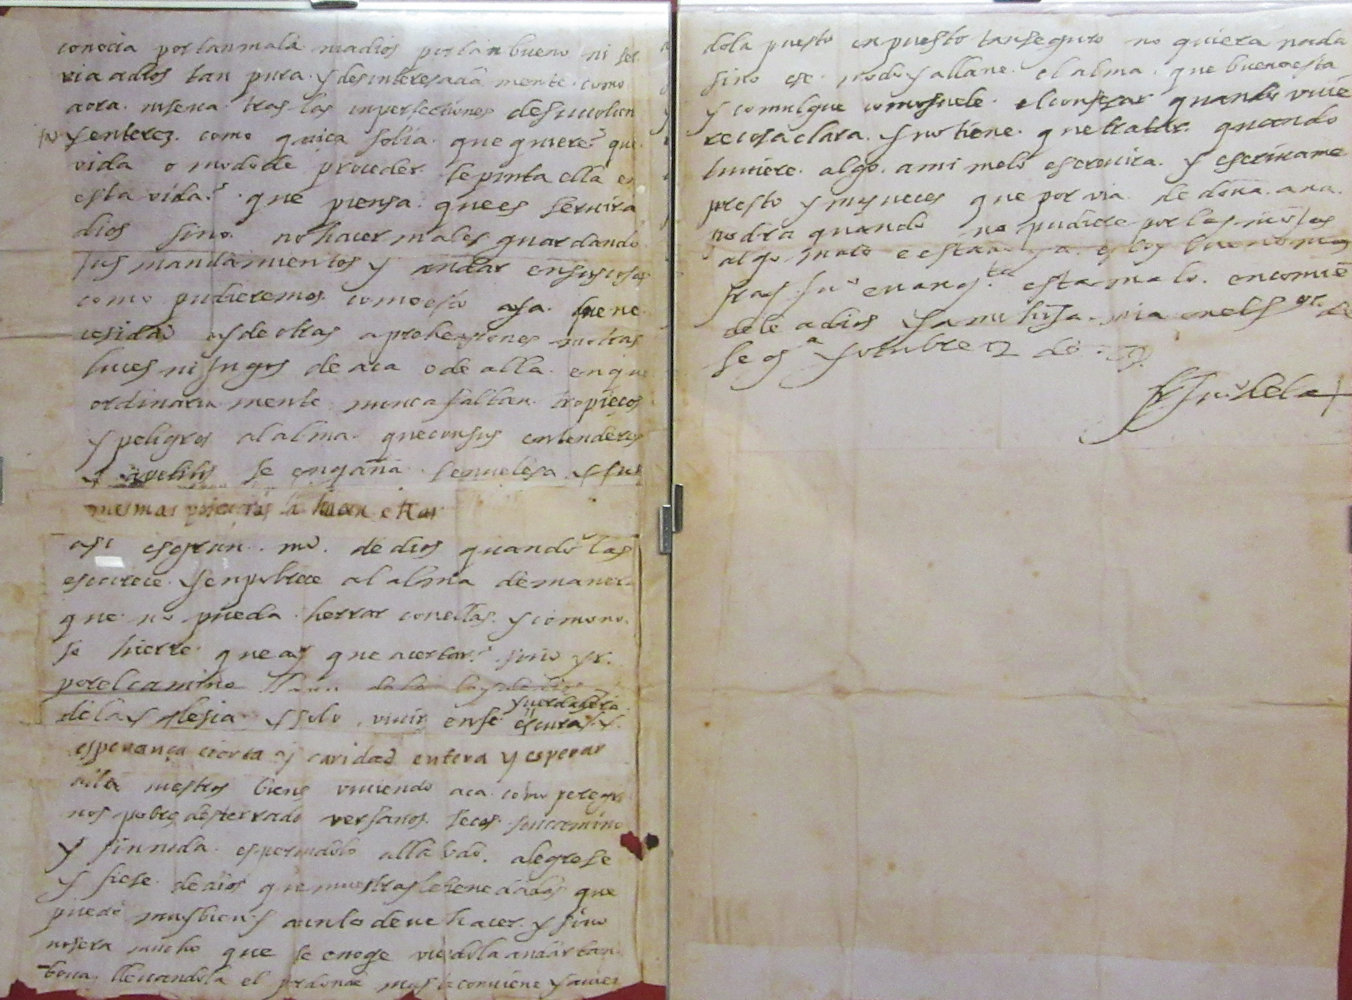 conocia por tan mala ni a dios por tan bueno ni ser
via a dios tan pura y desinteresada mente como
aora ni se va tras las inperfectiones de su volun
y enterez. como quiça solia. que quiere? que
vida o modo de proceder se pinta ella en
esta vida? que piensa. que es servir a
dios sino no hacer males guardando
sus mandamientos y andar en sus cosas
como pudieremos como esto aya. que ne
cesidad ay de otras aprehensiones ni otras
luces ni jugos de aca o de alla. en que
ordinaria mente nunca faltan tropieços
y peligros al alma. que con sus entenderes
y apetitos se engaña. se embelesa y sus
mesmas potencias la hacen errar
asi es gran md. de dios quando las
escurece y enpobrece al alma de maner
que no pueda herrar con ellas. y como no
se hierre que ay que acertar? sino yr.
por el camino llano de la ley de dios
y verdadera
de la yglesia y solo vivir en fe escura y
esperança cierta y caridad entera y esperar
alla nuestros bienes viviendo aca como peregri
nos pobres desterrados huerfanos secos sin camino
y sin nada. esperandolo alla todo. alegrese
y fiese de dios que muestras le tiene dadas que
puede muy bien y aun lo deve hacer. y sino
no sera mucho que se enoge viendola andar tan
bova llevandola el por donde mas le conviene y avien
dola puesto en puesto tan seguro no quiera nada
sino ese modo y allane el alma. que buena esta
y comulgue como suele. el confesar quando tuvie
re cosa clara. y no tiene que tratar. quando
tuviere algo a mi me lo escrivira. y escrivame
presto y mas veces que por via de doña ana
podra quando no pudiere por las monjas
algo malo e estado ya estoy bueno mas
fray Juº evangta esta malo. encomie
dele a dios y a mi hija mia en el Sr. de
Sega y otubre 12 de 89.
fr Juº de la +